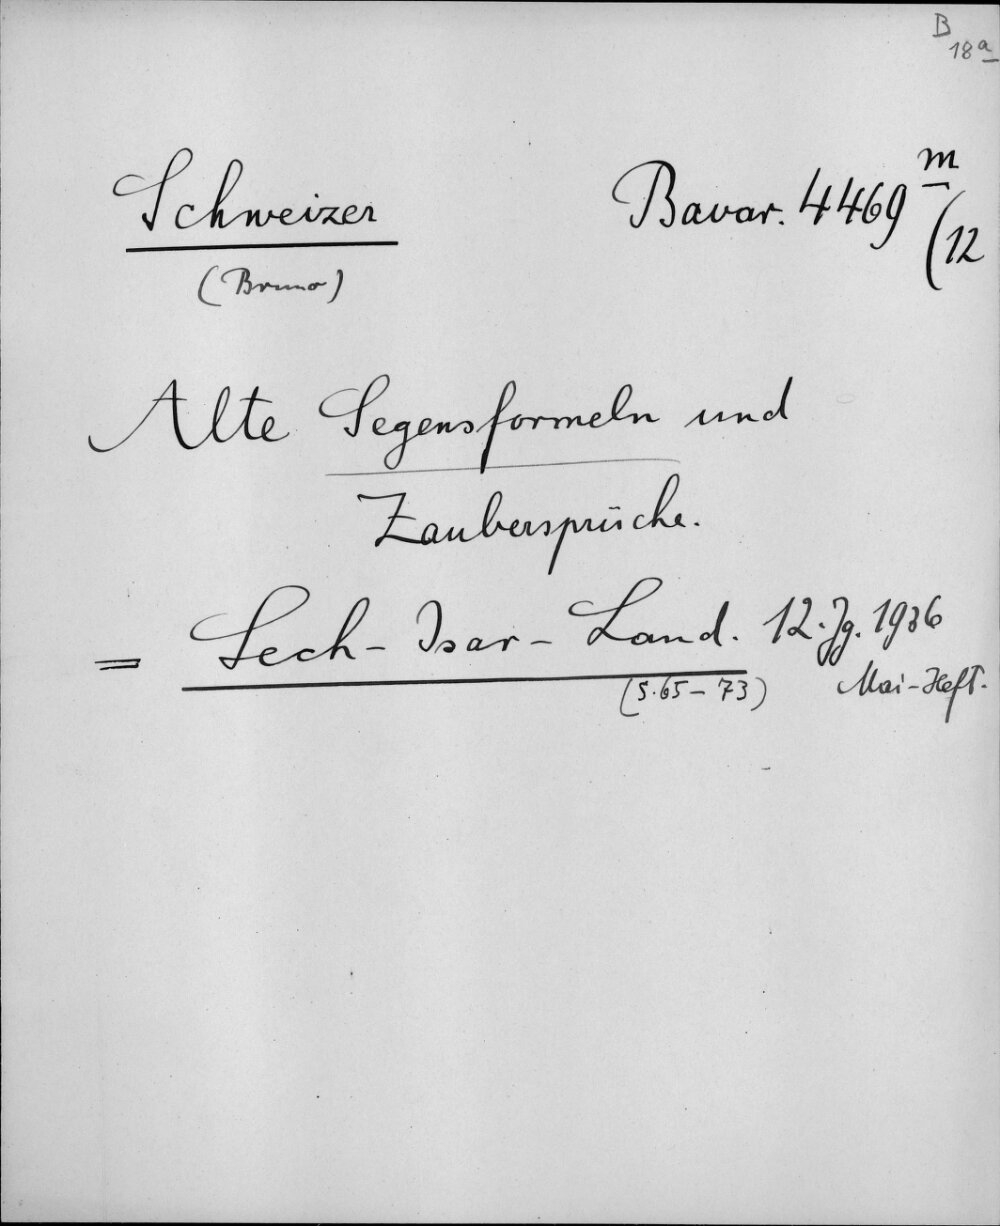 B
18a
Schweizer
Bavar. 4469 m (12
(Bruno)
Alte Segensformeln und
Zaubersprüche.
= Lech-Isar-Land. 12. Jg. 1936
(S. 65-73)
Mai-Heft.